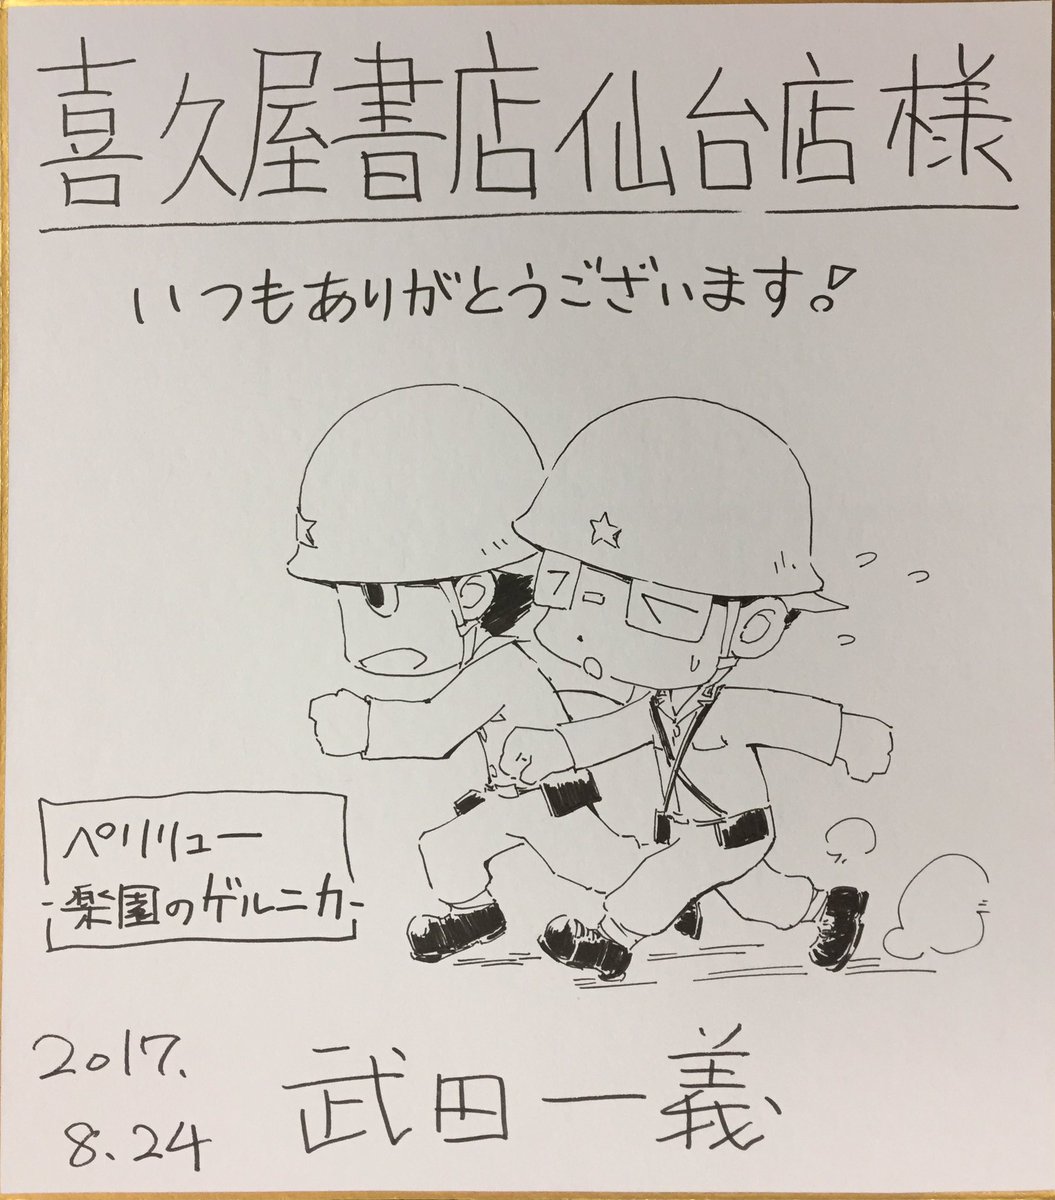 喜久屋書店仙台店様
いつもありがとうございます!
ペリリュー
-楽園のゲルニカ-
2017.
8.24
武田一義